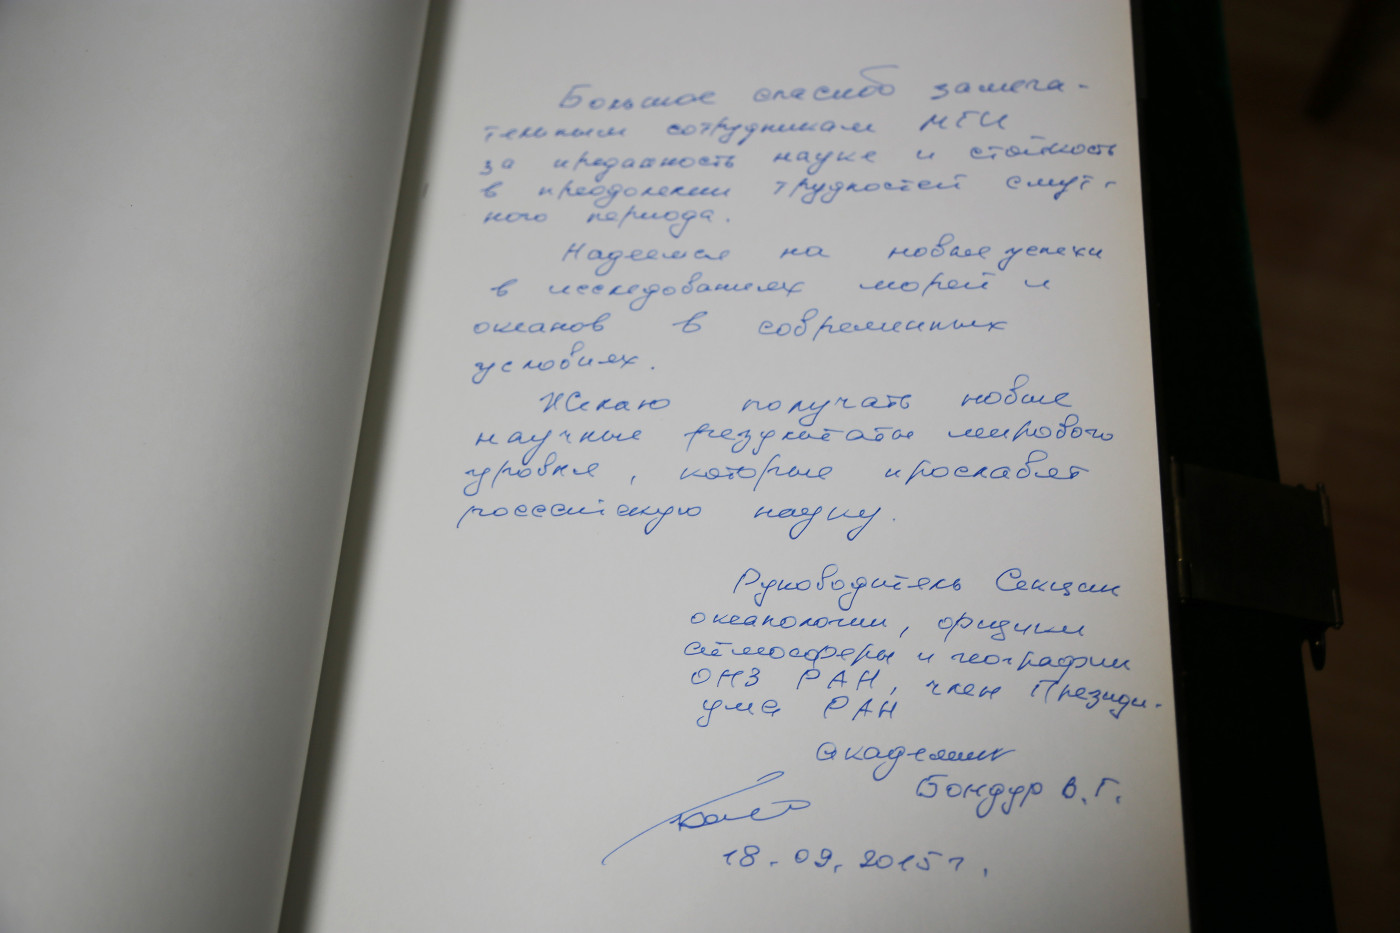 Большое спасибо замеча-
тельным сотрудникам МГИ
за преданность науке и стойкость
в преодолении трудностей смут-
ного периода.
Надеемся на новые успехи
в исследованиях морей и
океанов в современных
условиях.
Желаю получать новые
научные результаты мирового
уровня, которые прославят
российскую науку.
Руководитель Секции
океанологии, физики
атмосферы и географии
ОНЗ РАН, член Президи-
ума РАН
академик
Бондур В.Г.
18.09.2015г.